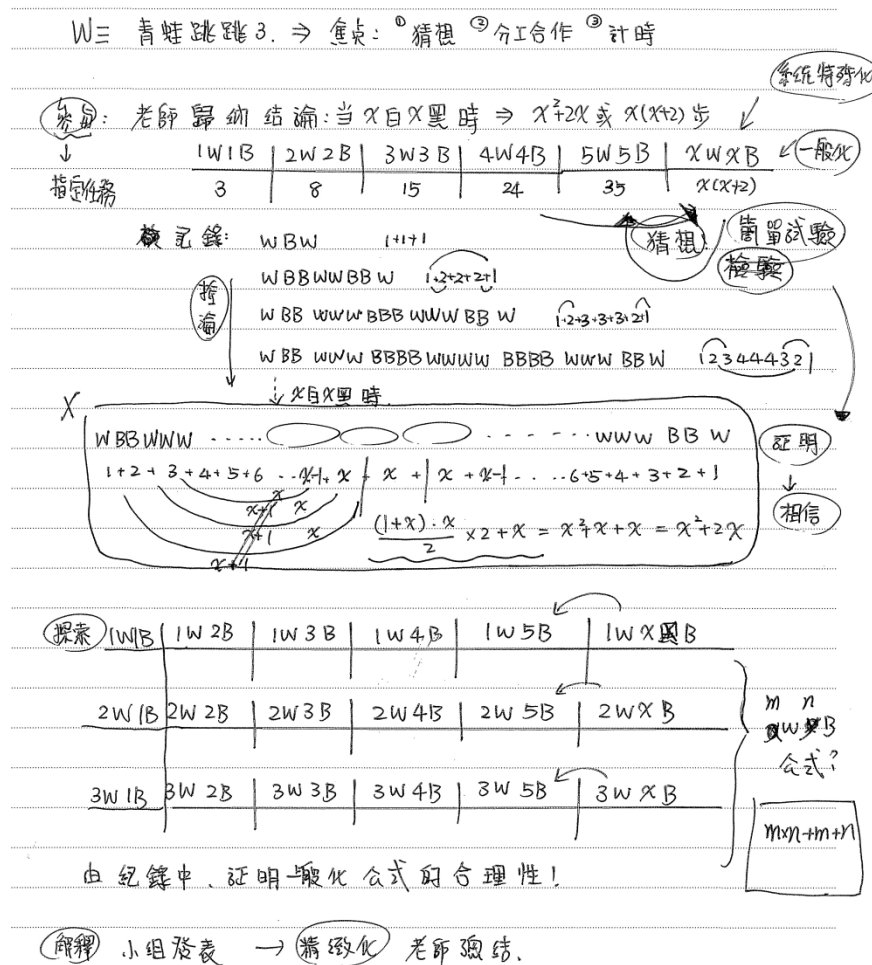 W三 青蛙跳跳3. ⇒ 焦点: ①猜想 ②分工合作 ③計時
系統特殊化
參与: 老師歸納結論:當x白x黑時 ⇒ x²+2x或 x(x+2)步
↓ 1W1B | 2W2B | 3W3B | 4W4B | 5W5B | xWxB ← 一般化
指定任務 3 8 15 24 35 x(x+2)
記錄: WBW 1+1+1
猜想: 簡單試驗
檢驗
WBBWWBBW 1+2+2+2+1
推論
WBB WWW BBB WWW BB W 1+2+3+3+3+2+1
WBB WWW BBBB WWWW BBBB WWW BBW 1 2 3 4 4 4 3 2 1
↓ x白x黑時
X
WBBWWW ..... - - - - - WWW BB W
証明
1+2+3+4+5+6 ... x-1+x + x + x+x-1 .... 6+5+4+3+2+1
↓
相信
x
x+1 x
x+1 x
x+1
(1+x)·x / 2 ×2+x = x²+x+x = x²+2x
探索 1W1B | 1W2B | 1W3B | 1W4B | 1W5B | 1WxB
2W1B | 2W2B | 2W3B | 2W4B | 2W5B | 2WxB
m n
W B
公式?
3W1B | 3W2B | 3W3B | 3W4B | 3W5B | 3WxB
m×n+m+n
由紀錄中、証明一般化公式的合理性!
解釋 小組發表 → 精緻化 老師總結.